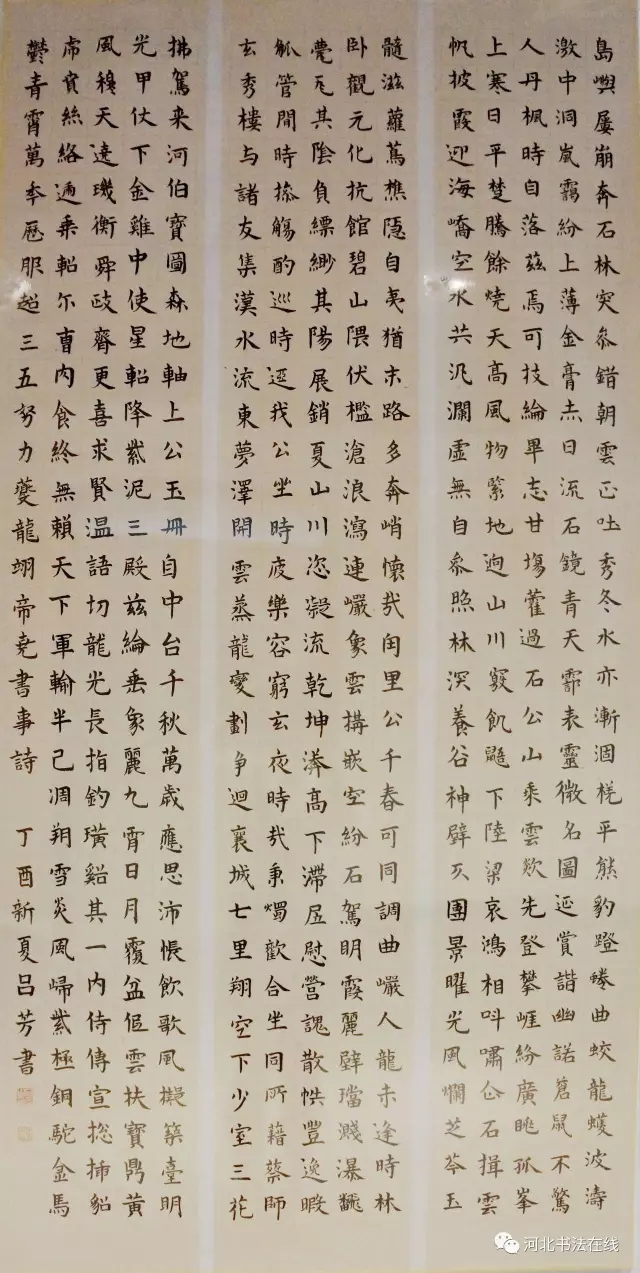 島嶼屢崩奔石林突叅錯朝雲正吐秀冬水亦漸涸桄平熊豹蹬蜷曲蛟龍蠖波濤
激中洞嵐靄紛上薄金膏赤日流石鏡青天霨表靈微名圖延賞諧幽諾蒼鼠不驚
人丹楓時自落茲焉可技綸畢志甘塲藿過石公山乘雲欻先登攀崕紛廣眺孤峯
上寒日平楚騰餘燒天高風物緊地迥山川竅飢鼯下陸梁哀鴻相呌嘯仚石揖雲
帆披霞迎海嶠空水共汎瀾虛無自叅照林溟養谷神壁仄團景曜光風爛芝苓玉
髓滋蘿蔦樵隱自夷猶末路多奔峭懷哉閈里公千春可同調曲巗人龍未逢時林
卧觀元化抗館碧山隈伏檻滄浪瀉連巗象雲搆嵌空紛石駕明霞麗壁璫濺瀑飜
甍瓦其陰負縹緲其陽展銷夏山川恣凝流乾坤漭高下滯屈慰營魂散帙豐逸暇
觚管間時搽觴酌巡時逕我公坐時疲樂容窮玄夜時哉秉燭歡合坐同所藉蔡師
玄秀樓与諸友集漢水流東夢澤開雲蒸龍變劃爭迴襄城七里翔空下少室三花
拂駕来河伯寶圖森地軸上公玉冊自中台千秋萬歲應思沛悵飲歌風擬築臺明
光甲仗下金雞中使星軺降紫泥三殿茲綸垂象麗九霄日月覆盆傴雲扶寶鼎黄
風穆天逵璣衡舜歧齊更喜求賢温語切龍光長指釣璜谿其一内侍傳宣揔揷貂
帍賁絲絡遹乘軺尓曺内食終無賴天下軍輸半己凋翔雪炎風㱕紫極銅駝金馬
鬱青霄萬夲歷服超三五努力夔龍翊帝尭書事詩 丁酉新夏吕芳書
河北书法在线